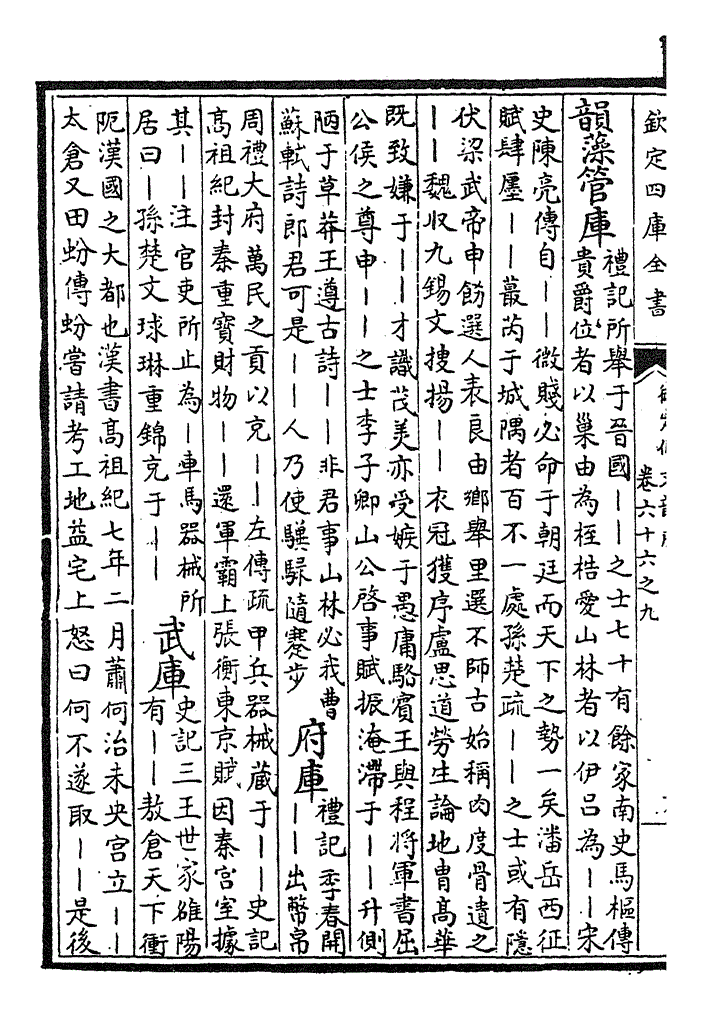 欽定四庫全書
卷六十六之九
韻藻管庫
禮記所舉于晉國――之士七十有餘家南史馬樞傳
貴爵位者以巢由為桎梏愛山林者以伊呂為――宋
史陳亮傳自――微賤必命于朝廷而天下之勢一矣潘岳西征
賦肆㕓――蕞芮于城隅者百不一處孫楚疏――之士或有隱
伏梁武帝申飭選人表良由鄉舉里選不師古始稱肉度骨遺之
――魏収九錫文搜揚――衣冠獲序盧思道勞生論地胄高華
既致嫌于――才識茂美亦受嫉于愚庸駱賓王與程將軍書屈
公侯之尊申――之士李子卿山公啓事賦振淹滯于――升側
陋于草莽王遵古詩――非君事山林必我曹
蘇軾詩郎君可是――人乃使驥騄隨蹇步
府庫
禮記季春開
――出幣帛
周禮大府萬民之貢以充――左傳疏甲兵器械藏于――史記
高祖紀封秦重寶財物――還軍霸上張衡東京賦因秦宮室據
其――注官吏所止為―車馬器械所
居曰―孫楚文球琳重錦充于――
武庫
史記三王世家雒陽
有――敖倉天下衝
阨漢國之大都也漢書高祖紀七年二月蕭何治未央宮立――
太倉又田蚡傳蚡嘗請考工地益宅上怒曰何不遂取――是後